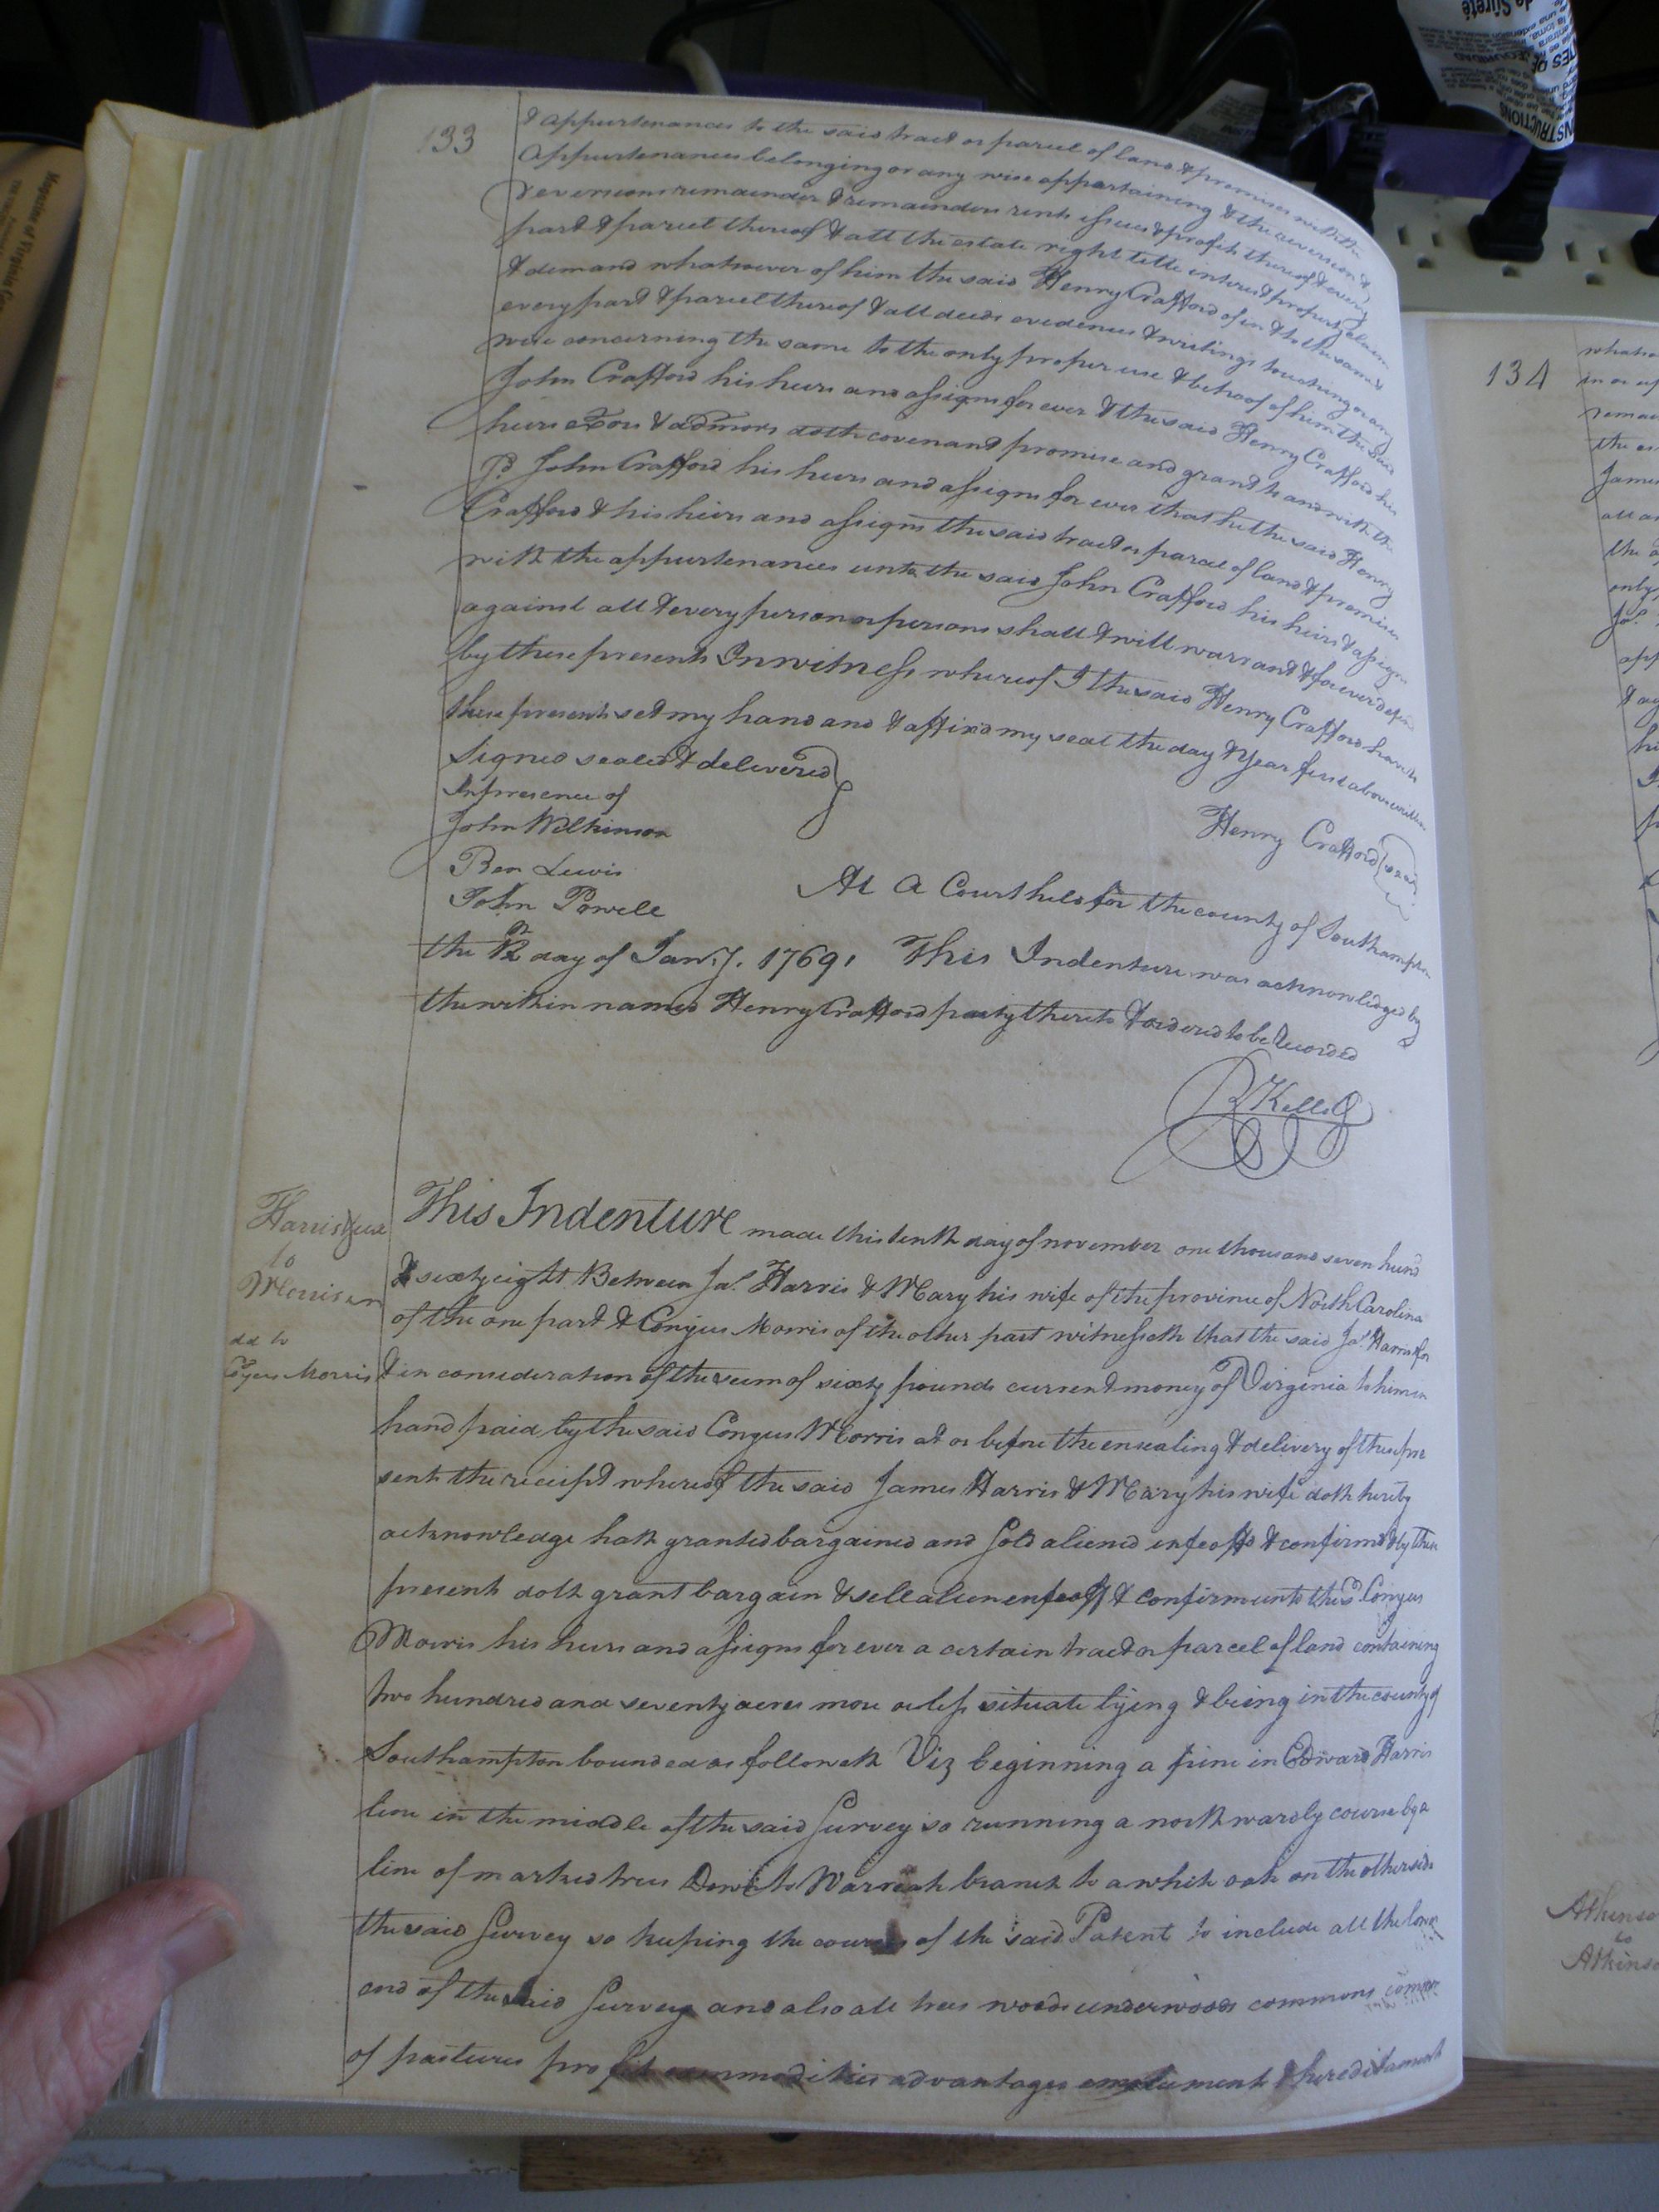 133
& appurtenances to the said tract or parcel of land & premises with the
appurtenances belonging or any wise appertaining & the reversion &
reversions remainder & remainders rents issues & profits thereof & every
part & parcel thereof & all the estate right title interest property claim
& demand whatsoever of him the said Henry Crafford of in & to the same &
every part & parcel thereof & all deeds evidences & writings touching or any
wise concerning the same to the only proper use & behoof of him the said
John Crafford his heirs and assigns for ever & the said Henry Crafford his
heirs Exors & admors doth covenant promise and grant to and with the
sd. John Crafford his heirs and assigns for ever that he the said Henry
Crafford & his heirs and assigns the said tract or parcel of land & premises
with the appurtenances unto the said John Crafford his heirs & assigns
against all & every person or persons shall & will warrant & forever defend
by these presents In witness whereof I the said Henry Crafford have to
these presents set my hand and & affixd my seal the day & Year first above written
Signed sealed & delivered
In presence of
John Wilkinson
Henry Crafford (seal)
Ben Lewis
John Powell
At a Court held for the county of Southampton
the 12th day of Jany. 1769. This Indenture was acknowledged by
the within named Henry Crafford party thereto & ordered to be Recorded
R Kello
Harris & ux
to
Morris
dd to
Conyus Morris
This Indenture made this tenth day of november one thousand seven hund
& sixty eight Between Jas. Harris & Mary his wife of the province of North Carolina
of the one part & Conyus Morris of the other part witnesseth that the said Jas. Harris for
& in consideration of the sum of sixty pounds current money of Virginia to him in
hand paid by the said Conyus Morris at or before the ensealing & delivery of these pre
sents the receipt whereof the said James Harris & Mary his wife doth hereby
acknowledge hath granted bargained and sold aliened enfeoffd & confirmd & by these
present doth grant bargain & sell alien enfeoff & confirm unto the sd. Conyus
Morris his heirs and assigns for ever a certain tract or parcel of land containing
two hundred and seventy acres more or less situate lying & being in the county of
Southampton bounded as followeth Viz beginning a pine in Edward Harris
line in the middle of the said Survey so running a northwardly course by a
line of marked trees Down to branch to a white oak on the other side
the said Survey so keeping the courses of the said Patent to include all the
end of the said Survey and also all trees woods underwoods commons common
of pastures profits commodities advantages emoluments & hereditaments
134
James
the
only
Atkinso
to
Atkinso